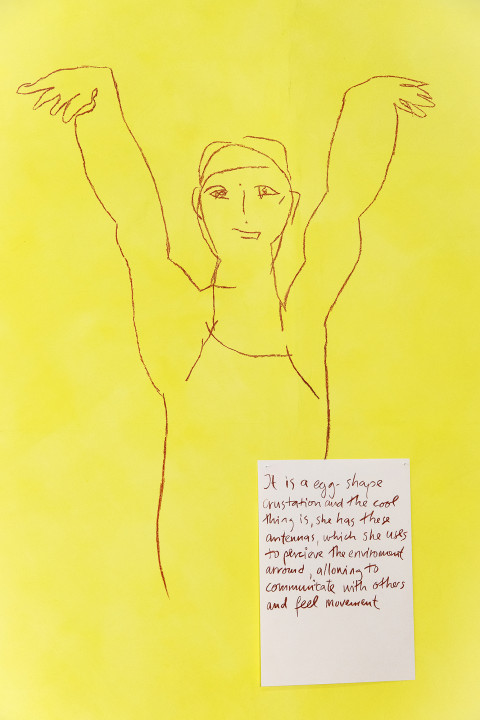 It is a egg-shape
crustation and the cool
thing is, she has these
antennas, which she uses
to percieve the enviroment
arround, allowing to
communitate with others
and feel movement